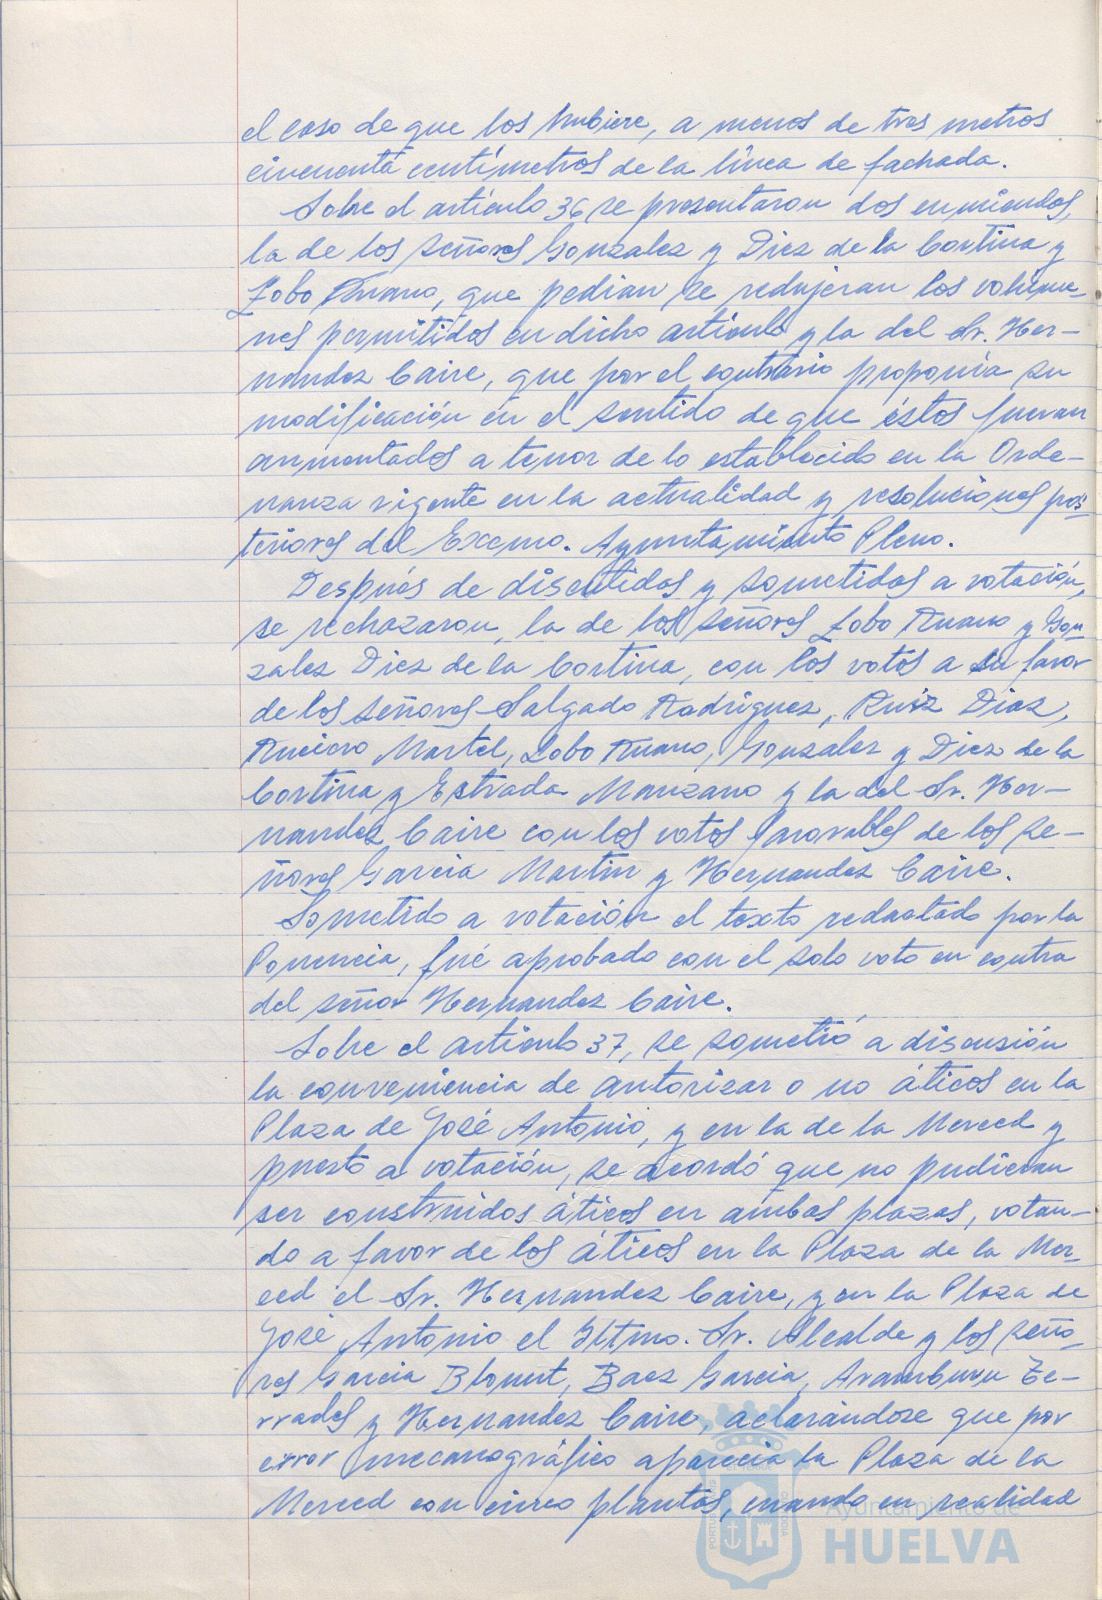 el caso de que los hubiere, a menos de tres metros
cincuenta centímetros de la línea de fachada.
Sobre el artículo 36 se presentaron dos enmiendas,
la de los señores Gonzalez y Diez de la Cortina y
Lobo Ruano, que pedian se redujeran los volúme-
nes permitidos en dicho artículo y la del Sr. Her-
nandez Caire, que por el contrario proponía su
modificación en el sentido de que éstos fueran
aumentados a tenor de lo establecido en la Orde-
nanza vigente en la actualidad y resoluciones pos-
teriores del Excmo. Ayuntamiento Pleno.
Después de discutidas y sometidas a votación,
se rechazaron, la de los señores Lobo Ruano y Gon-
zalez Diez de la Cortina, con los votos a su favor
de los señores Salgado Rodriguez, Ruiz Diaz,
Rucicro Martel, Lobo Ruano, Gonzalez y Diez de la
Cortina y Estrada Manzano y la del Sr. Her-
nandez Caire con los votos favorables de los se-
ñores Garcia Martin y Hernandez Caire.
Sometido a votación el texto redactado por la
Ponencia, fué aprobado con el solo voto en contra
del señor Hernandez Caire.
Sobre el artículo 37, se sometió a discusión
la conveniencia de autorizar o no áticos en la
Plaza de José Antonio, y en la de la Merced y
puesto a votación, se acordó que no pudieran
ser construidos áticos en ambas plazas, votan-
do a favor de los áticos en la Plaza de la Mer-
ced el Sr. Hernandez Caire, y en la Plaza de
José Antonio el Iltmo. Sr. Alcalde y los seño-
res Garcia Blount, Baez Garcia, Aramburu Te-
rrades y Hernandez Caire, aclarándose que por
error mecanográfico aparecia la Plaza de la
Merced con cinco plantas, cuando en realidad
Ayuntamiento de
HUELVA